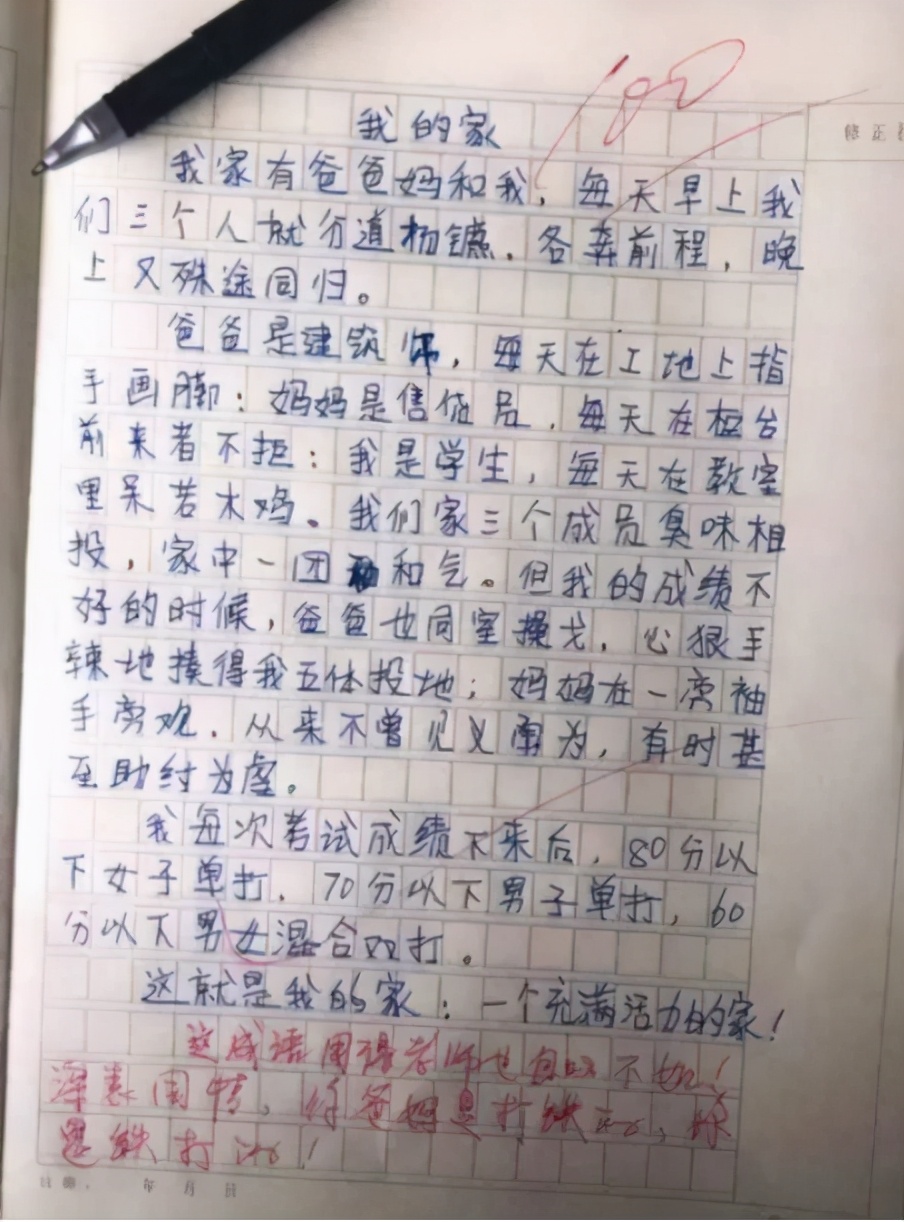 100
修正
我的家
我家有爸爸妈和我，每天早上我
们三个人就分道杨镳，各奔前程，晚
上又殊途同归。
爸爸是建筑师，每天在工地上指
手画脚；妈妈是信贷员，每天在柜台
前来者不拒；我是学生，每天在教室
里呆若木鸡。我们家三个成员臭味相
投，家中一团和气。但我的成绩不
好的时候，爸爸也同室操戈，心狠手
辣地揍得我五体投地；妈妈在一旁袖
手旁观，从来不曾见义勇为，有时甚
至助纣为虐。
我每次考试成绩下来后，80分以
下女子单打，70分以下男子单打，60
分以下男女混合双打。
这就是我的家：一个充满活力的家！
这成语用得老师也自叹不如！
深表同情，你爸妈是打铁的，你
是铁打的！
日期： 年 月 日